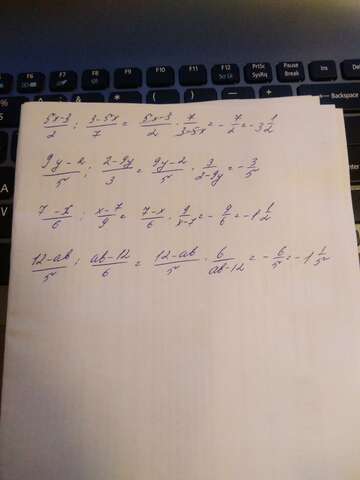 F6 F7 F8 F9 F10 F11 F12 PrtSc SysRq Pause Break Ins Del
(5x-3)/2 : (3-5x)/7 = (5x-3)/2 · 7/(3-5x) = -7/2 = -3 1/2
(9y-2)/5 : (2-9y)/3 = (9y-2)/5 · 3/(2-9y) = -3/5
(7-x)/6 : (x-7)/9 = (7-x)/6 · 9/(x-7) = -9/6 = -1 1/2
(12-ab)/5 : (ab-12)/6 = (12-ab)/5 · 6/(ab-12) = -6/5 = -1 1/5